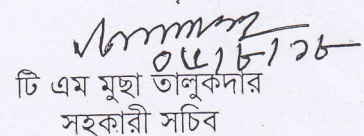 ০৫/৮/১৮
টি এম মুছা তালুকদার
সহকারী সচিব